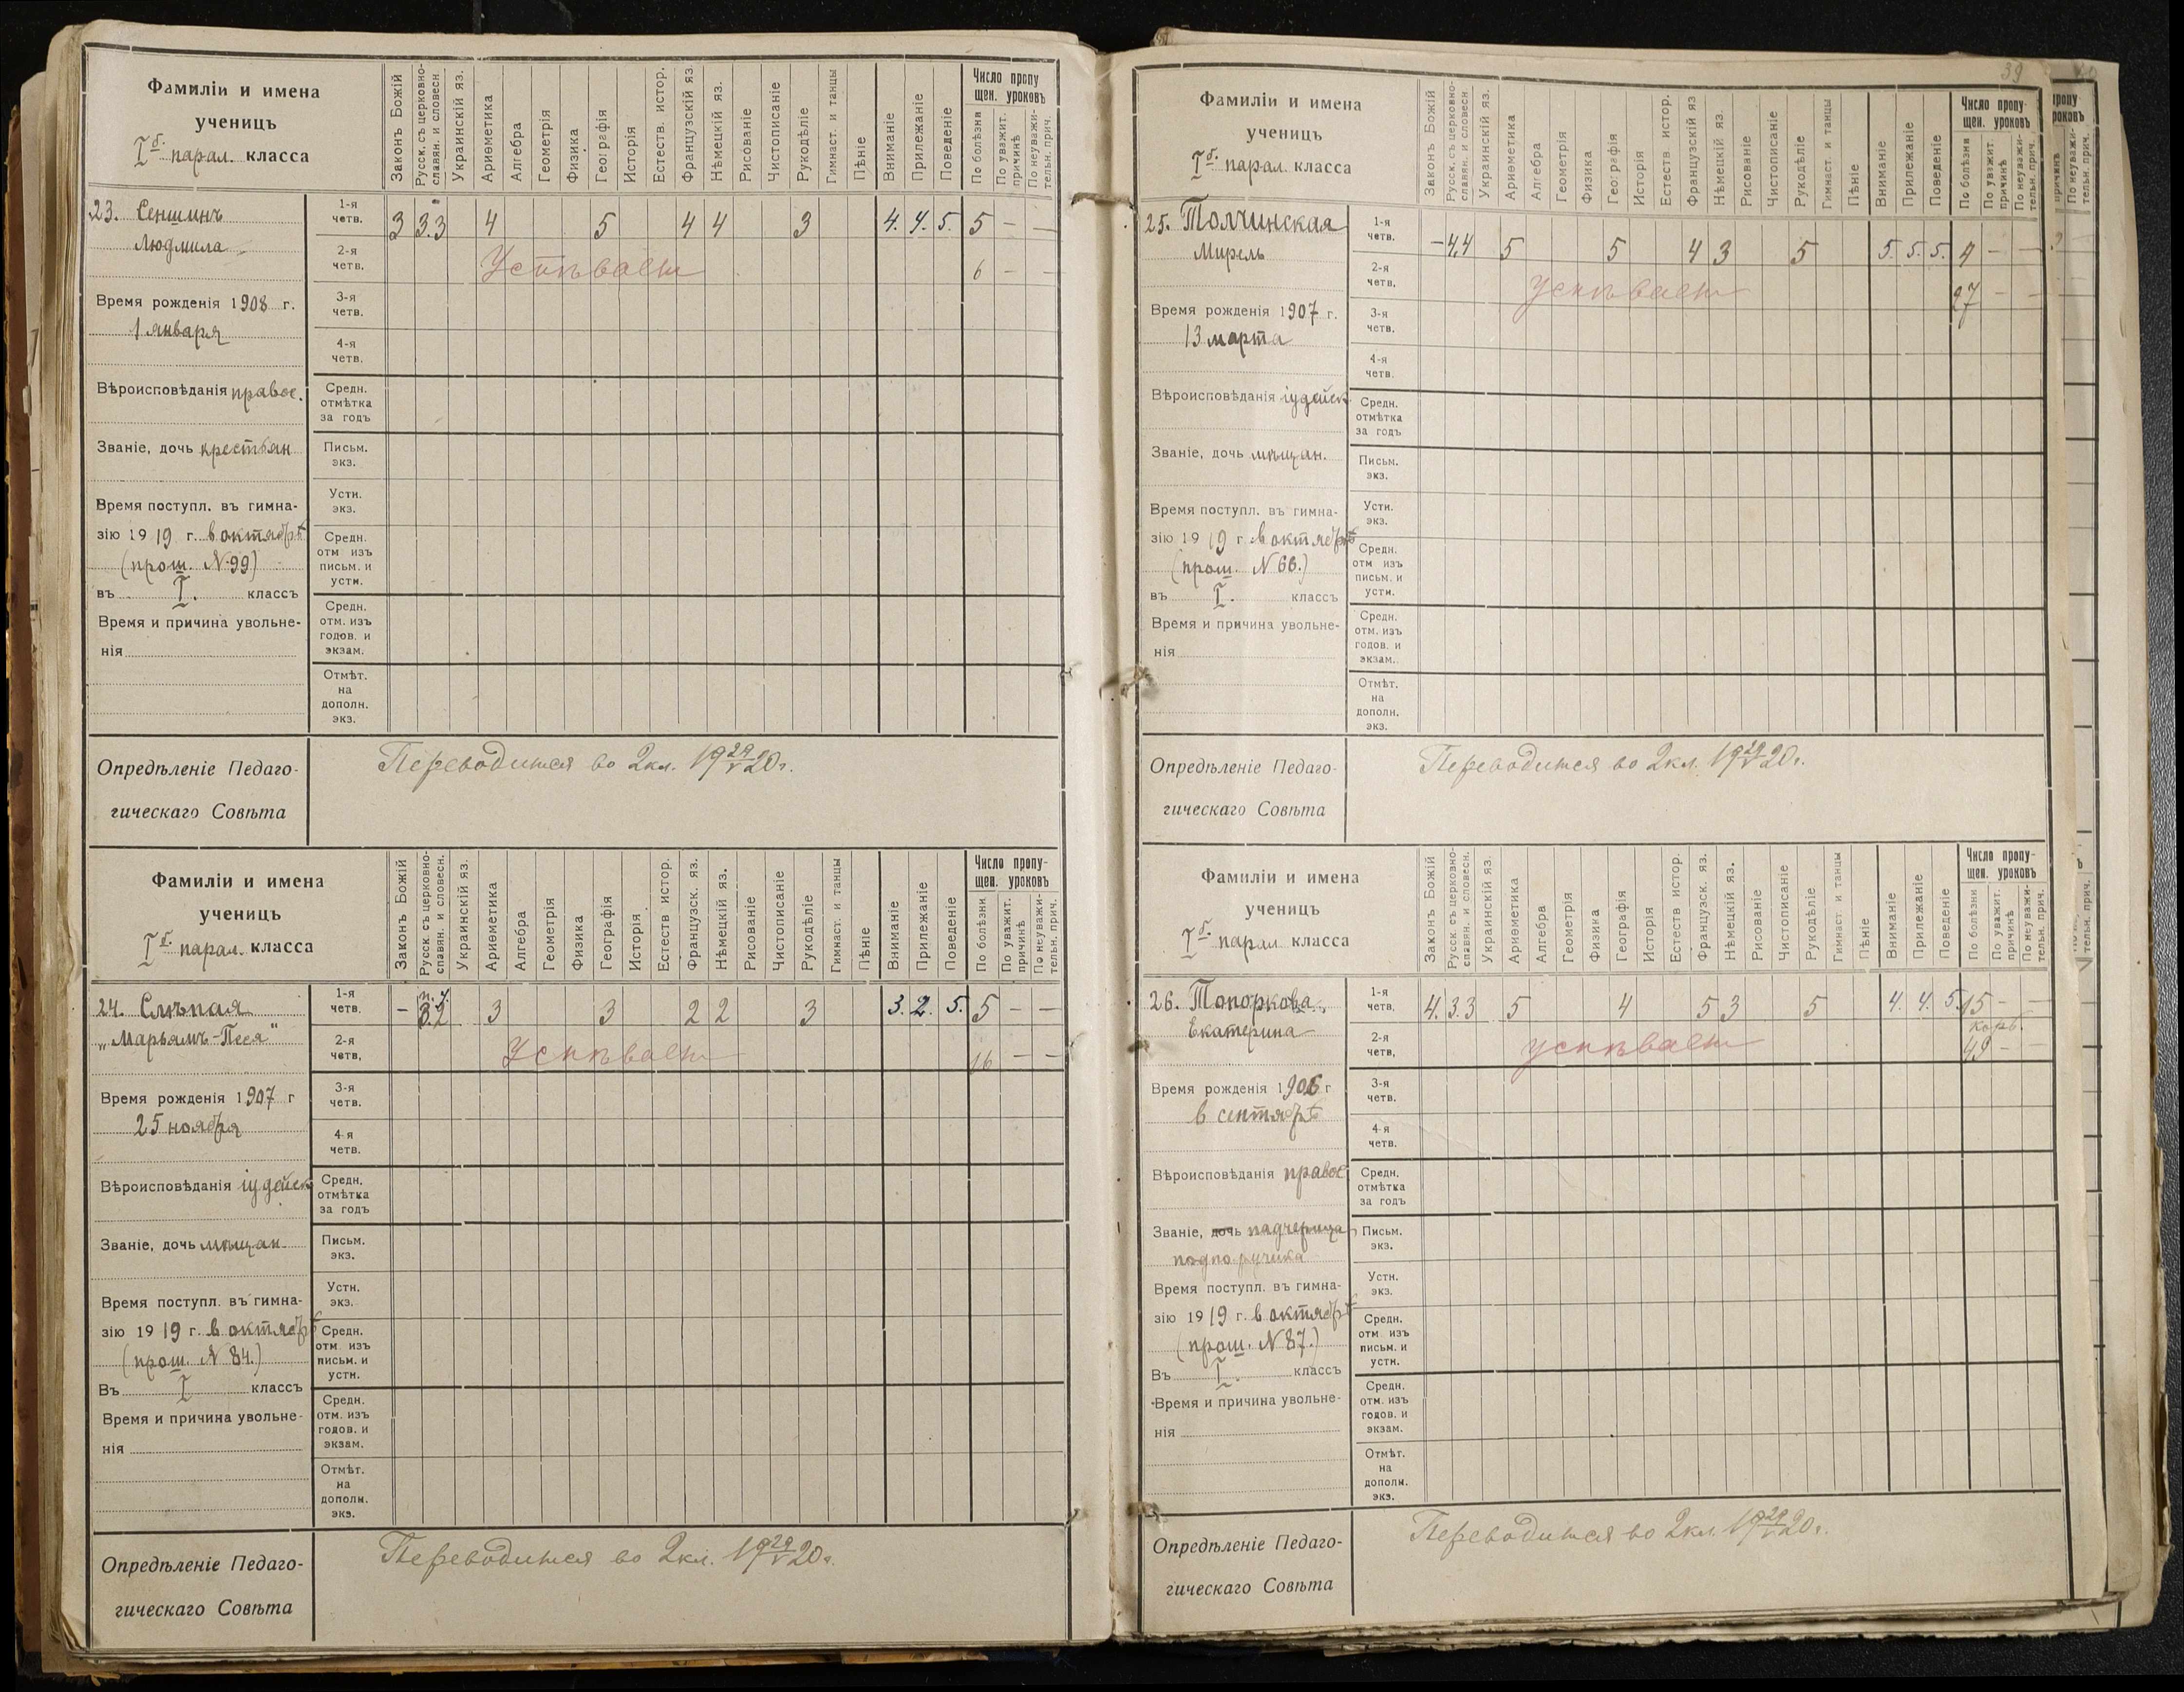 Фамиліи и имена
ученицъ
I б. парал. класса
Законъ Божій
Русск. съ церковно-
славян. и словесн
Украинскій яз.
Ариѳметика
Алгебра
Геометрія
Физика
Географія
Исторія
Естеств. истор.
Французскій яз.
Нѣмецкій яз.
Рисованіе
Чистописаніе
Рукодѣліе
Гимнаст. и танцы
Пѣніе
Вниманіе
Прилежаніе
Поведеніе
Число пропу
щен. уроковъ
По болѣзни
По уважит.
причинѣ
По неуважи-
тельн. прич.
23. Сеншинъ
Людмила
1-я
четв.
3 3.3 4 5 4 4 3 4. 4. 5. 5 – –
2-я
четв.
Успѣваетъ 6 – –
Время рожденія 1908 г.
1 января
3-я
четв.
4-я
четв.
Вѣроисповѣданія правос.
Средн.
отмѣтка
за годъ
Званіе, дочь крестьян
Письм.
экз.
Время поступл. въ гимна-
зію 19 19 г. в октябрѣ
(прош. N 99)
въ I. классъ
Устн.
экз.
Средн.
отм изъ
письм. и
устн.
Время и причина увольне-
нія
Средн.
отм. изъ
годов. и
экзам.
Отмѣт.
на
дополн.
экз.
Опредѣленіе Педаго-
гическаго Совѣта
Переводится во 2 кл. 19 29/V 20 г.
Фамиліи и имена
ученицъ
I б. парал. класса
Законъ Божій
Русск. съ церковно-
славян. и словесн.
Украинскій яз.
Ариѳметика
Алгебра
Геометрія
Физика
Географія
Исторія
Естеств истор.
Французск. яз.
Нѣмецкій яз.
Рисованіе
Чистописаніе
Рукодѣліе
Гимнаст. и танцы
Пѣніе
Вниманіе
Прилежаніе
Поведеніе
Число пропу-
щен. уроковъ
По болѣзни
По уважит.
причинѣ
По неуважи-
тельн. прич.
24. Слѣпая
„Марьямъ-Песя“
1-я
четв.
– 3.2 3 3 2 2 3 3. 2. 5. 5 – –
2-я
четв,
Успѣваетъ 16 – –
Время рожденія 1907 г
25 ноября
3-я
четв.
4-я
четв.
Вѣроисповѣданія іудейск
Средн.
отмѣтка
за годъ
Званіе, дочь мѣщан
Письм.
экз.
Время поступл. въ гимна-
зію 19 19 г. в октябрѣ
(прош. N 84.)
Въ I классъ
Устн.
экз.
Средн.
отм. изъ
письм. и
устн.
Время и причина увольне-
нія
Средн.
отм. изъ
годов. и
экзам.
Отмѣт.
на
дополн.
экз.
Опредѣленіе Педаго-
гическаго Совѣта
Переводится во 2 кл. 19 29/V 20 г.
39
Фамиліи и имена
ученицъ
I б. парал. класса
Законъ Божій
Русск. съ церковно-
славян. и словесн
Украинскій яз.
Ариѳметика
Алгебра
Геометрія
Физика
Географія
Исторія
Естеств истор.
Французскій яз
Нѣмецкій яз.
Рисованіе
Чистописаніе
Рукодѣліе
Гимнаст. и танцы
Пѣніе
Вниманіе
Прилежаніе
Поведеніе
Число пропу-
щен. уроковъ
По болѣзни
По уважит.
причинѣ
По неуважи-
тельн. прич.
25. Толчинская
Мирель
1-я
четв.
– 4.4 5 5 4 3 5 5. 5. 5. 4 – –
2-я
четв.
Успѣваетъ 27 – –
Время рожденія 1907 г.
13 марта
3-я
четв.
4-я
четв.
Вѣроисповѣданія іудейск
Средн.
отмѣтка
за годъ
Званіе, дочь мѣщан.
Письм.
экз.
Время поступл. въ гимна-
зію 19 19 г в октябрѣ
(прош. N 66.)
въ I. классъ
Устн.
экз.
Средн.
отм изъ
письм. и
устн.
Время и причина увольне-
нія
Средн.
отм. изъ
годов. и
экзам.
Отмѣт.
на
дополн.
экз.
Опредѣленіе Педаго-
гическаго Совѣта
Переводится во 2 кл. 19 29/V 20 г.
Фамиліи и имена
ученицъ
I б. парал класса
Законъ Божій
Русск съ церковно-
славян. и словесн.
Украинскій яз.
Ариѳметика
Алгебра
Геометрія
Физика
Географія
Исторія
Естеств истор.
Французск. яз.
Нѣмецкій яз.
Рисованіе
Чистописаніе
Рукодѣліе
Гимнаст. и танцы
Пѣніе
Вниманіе
Прилежаніе
Поведеніе
Число пропу-
щен. уроковъ
По болѣзни
По уважит.
причинѣ
По неуважи-
тельн. прич.
26. Топоркова
Екатерина
1-я
четв.
4. 3.3 5 4 5 3 5 4. 4. 5. 15 – –
2-я
четв,
успѣваетъ 49 – –
Время рожденія 1906 г
в сентябрѣ
3-я
четв.
4-я
четв.
Вѣроисповѣданія правос
Средн.
отмѣтка
за годъ
Званіе, дочь падчерица
подпоручика
Письм.
экз.
Время поступл. въ гимна-
зію 19 19 г. в октябрѣ
(прош. N 87.)
Въ I. классъ
Устн.
экз.
Средн.
отм изъ
письм. и
устн.
Время и причина увольне-
нія
Средн.
отм. изъ
годов. и
экзам.
Отмѣт.
на
дополн.
экз.
Опредѣленіе Педаго-
гическаго Совѣта
Переводится во 2 кл. 19 29/V 20 г.